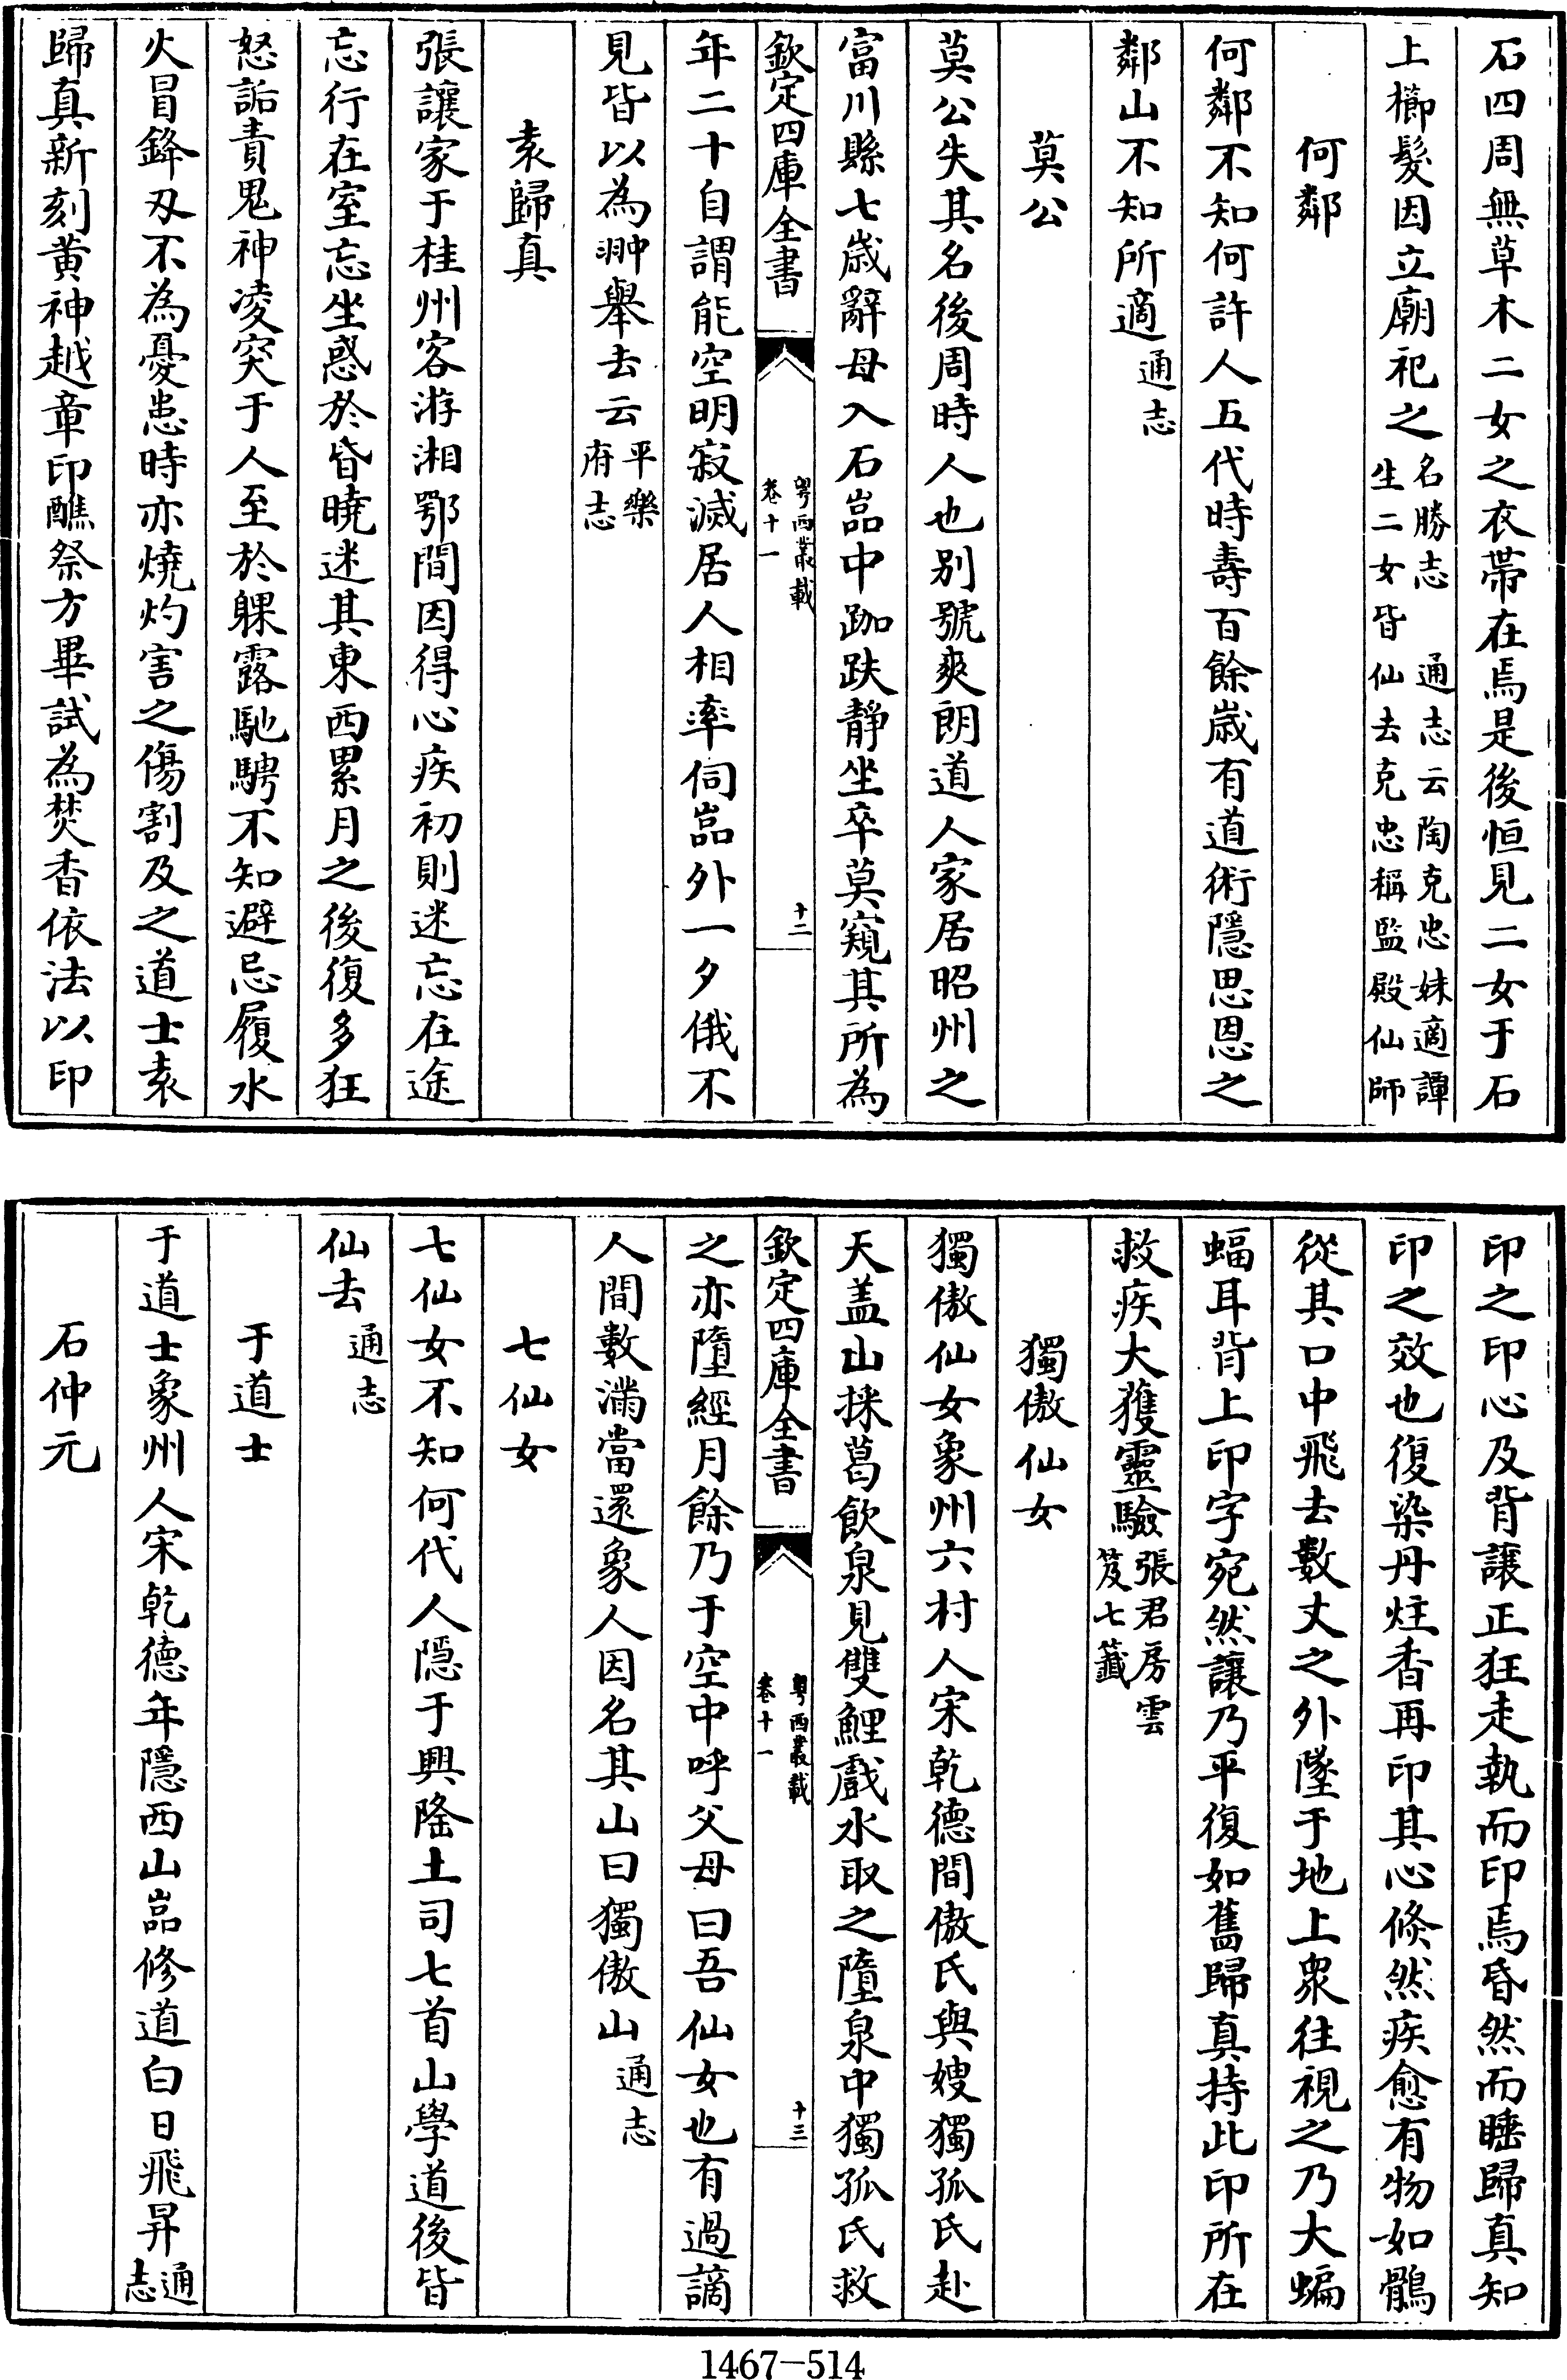 石四周無草木二女之衣帶在焉是後恒見二女于石
上櫛髮因立廟祀之名勝志　通志云陶克忠妹適譚
生二女皆仙去克忠稱監殿仙師
何鄰
何鄰不知何許人五代時壽百餘歲有道術隱思恩之
鄰山不知所適通志
莫公
莫公失其名後周時人也别號爽朗道人家居昭州之
富川縣七歲辭母入石嵓中跏趺靜坐卒莫窺其所為
欽定四庫全書
粤西叢載
卷十一
十二
年二十自謂能空明寂滅居人相率伺嵓外一夕俄不
見皆以為翀舉去云平樂
府志
袁歸真
張讓家于桂州客游湘鄂間因得心疾初則迷忘在途
忘行在室忘坐惑於昏曉迷其東西累月之後復多狂
怒詬責鬼神凌突于人至於躶露馳騁不知避忌履水
火冒鋒刄不為憂患時亦燒灼害之傷割及之道士袁
歸真新刻黄神越章印醮祭方畢試為焚香依法以印
印之印心及背讓正狂走執而印焉昏然而睡歸真知
印之效也復染丹炷香再印其心倐然疾愈有物如鶻
從其口中飛去數丈之外墜于地上衆往視之乃大蝙
蝠耳背上印字宛然讓乃平復如舊歸真持此印所在
救疾大獲靈驗張君房雲
笈七籖
獨傲仙女
獨傲仙女象州六村人宋乾德間傲氏與嫂獨孤氏赴
天盖山採葛飲泉見雙鯉戲水取之墮泉中獨孤氏救
欽定四庫全書
粤西叢載
卷十一
十三
之亦墮經月餘乃于空中呼父母曰吾仙女也有過謫
人間數滿當還象人因名其山曰獨傲山通志
七仙女
七仙女不知何代人隱于興隆土司七首山學道後皆
仙去通志
于道士
于道士象州人宋乾德年隱西山嵓修道白日飛昇通
志
石仲元
1467—514